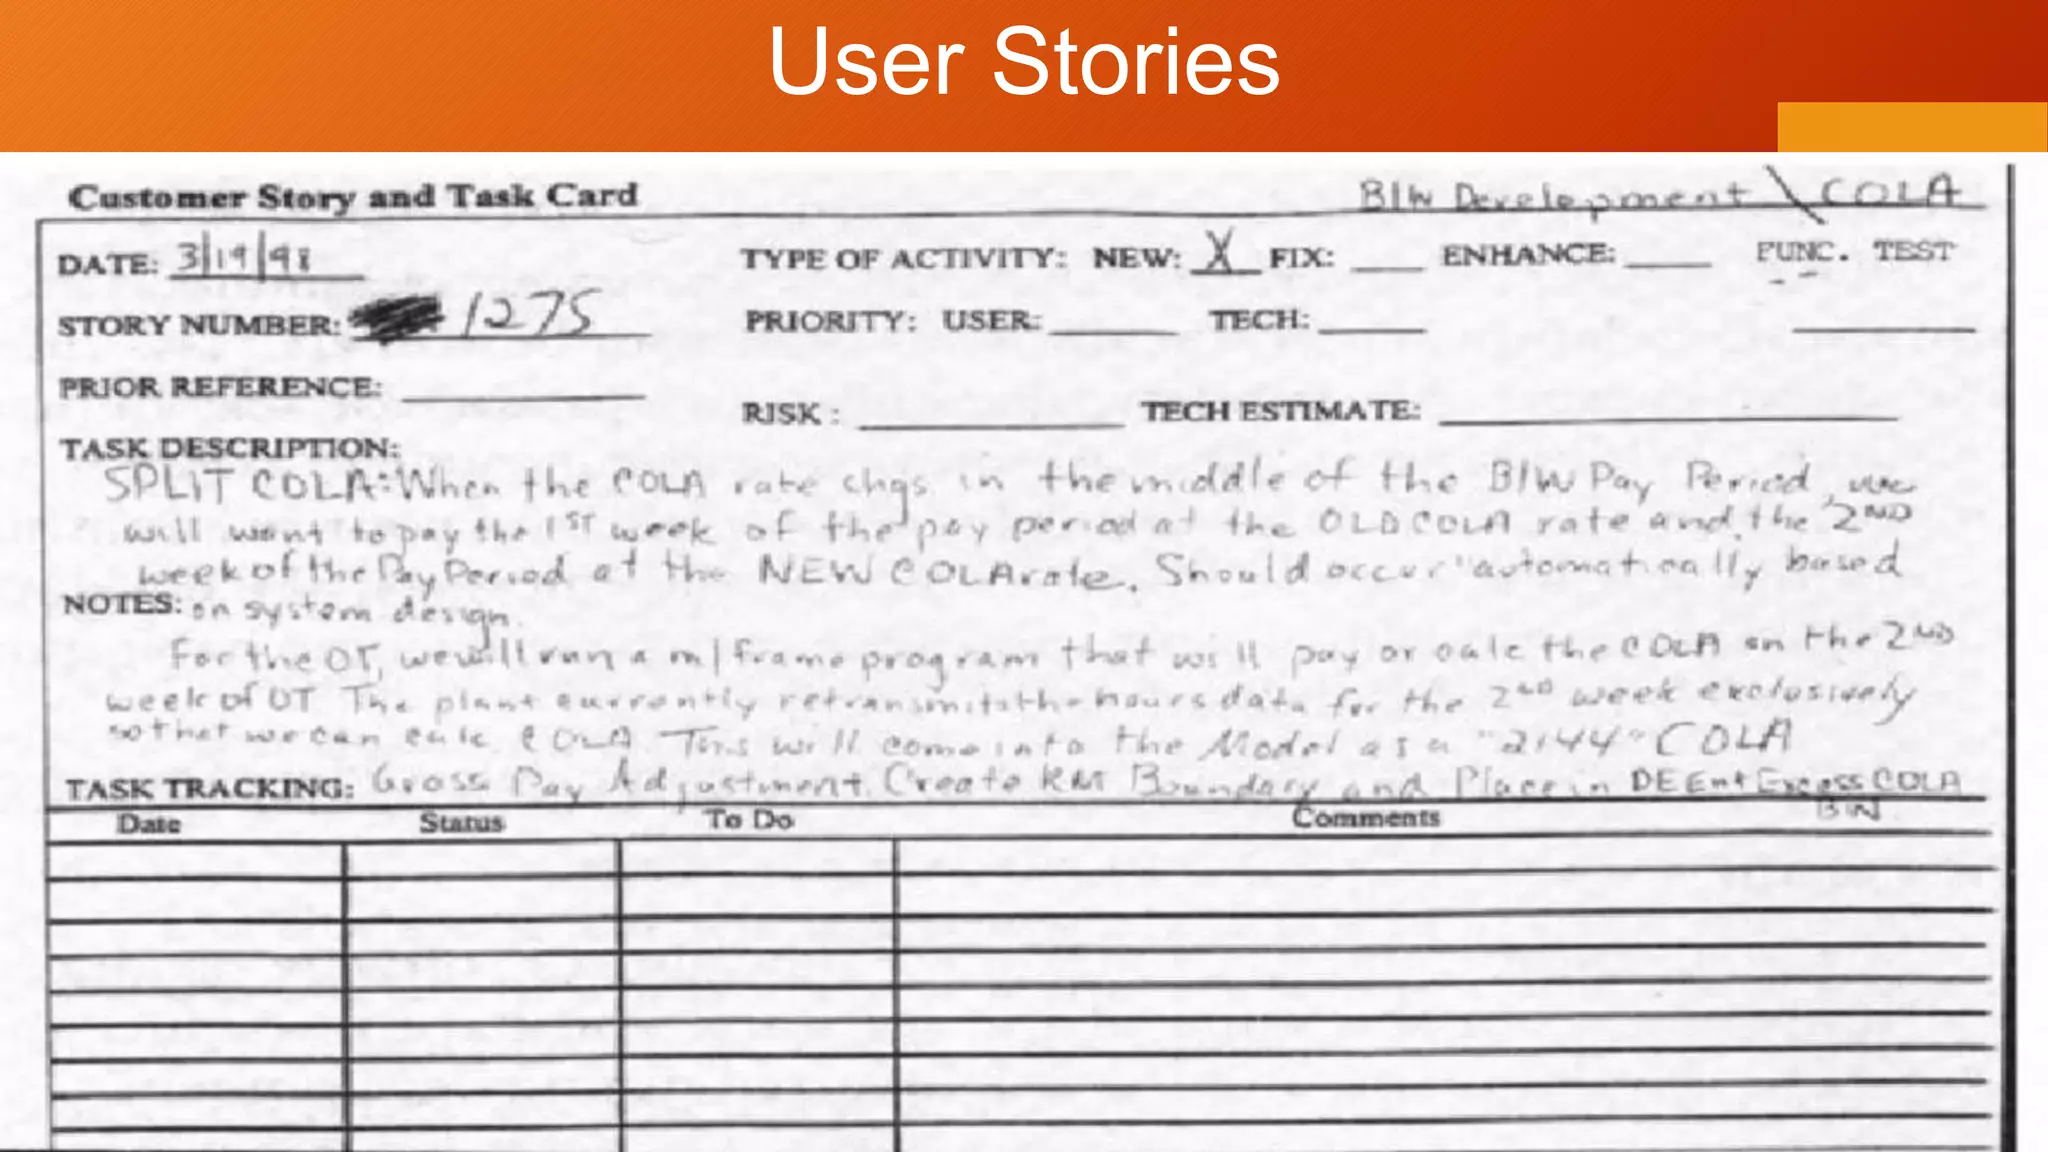 User Stories
Customer Story and Task Card BIW Development \ COLA
DATE: 3/19/98 TYPE OF ACTIVITY: NEW: X FIX: ENHANCE: FUNC. TEST
STORY NUMBER: 1275 PRIORITY: USER: TECH:
PRIOR REFERENCE:
RISK: TECH ESTIMATE:
TASK DESCRIPTION:
SPLIT COLA: When the COLA rate chgs in the middle of the BIW Pay Period, we
will want to pay the 1ST week of the pay period at the OLD COLA rate and the 2ND
week of the Pay Period at the NEW COLA rate. Should occur "automatically based
NOTES: on system design.
For the OT, we will run a m/frame program that will pay or calc the COLA on the 2ND
week of OT The plant currently retransmits the hours data for the 2ND week exclusively
so that we can calc COLA. This will come into the Model as a "2144" COLA
TASK TRACKING: Gross Pay Adjustment. Create RM Boundary and Place in DE Ent Excess COLA
BIN
Date Status To Do Comments